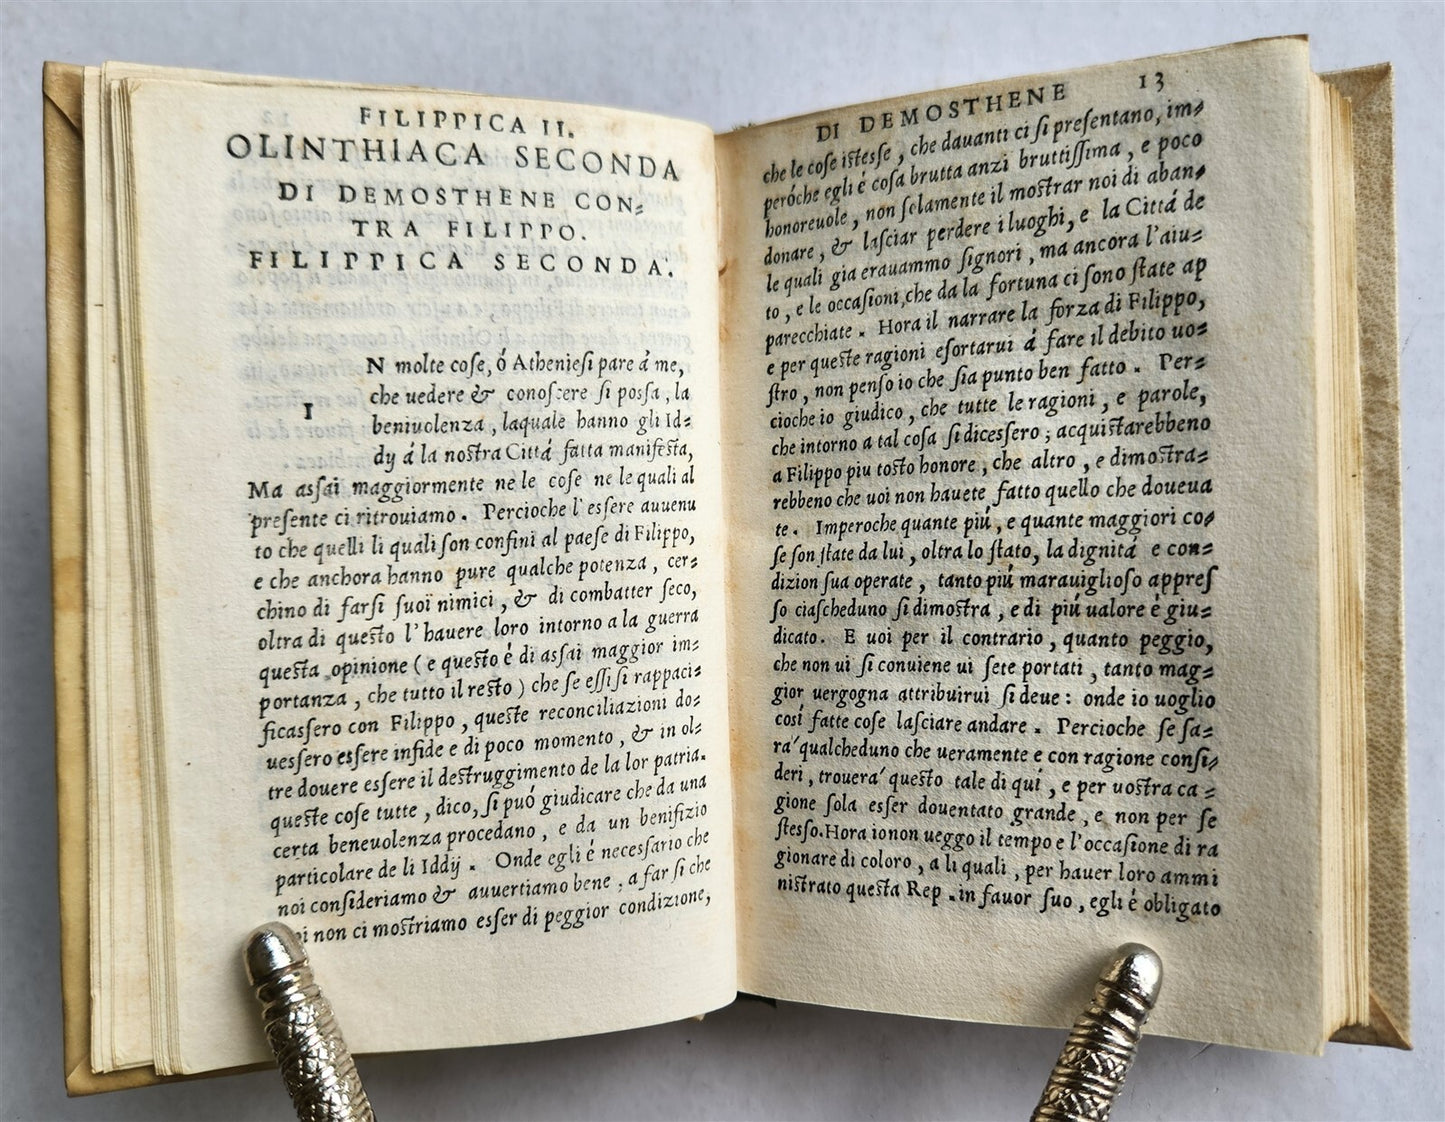 FILIPPICA II.
OLINTHIACA SECONDA
DI DEMOSTHENE CON=
TRA FILIPPO.
FILIPPICA SECONDA.
I
N molte coſe, ó Athenieſi pare á me,
che uedere & conoſcere ſi poſſa, la
beniuolenza, laquale hanno gli Id=
dy á la noſtra Cittá fatta manifeſta,
Ma aſſai maggiormente ne le coſe ne le quali al
preſente ci ritrouiamo. Percioche l'eſſere auuenu
to che quelli li quali ſon confini al paeſe di Filippo,
e che anchora hanno pure qualche potenza, cer=
chino di farſi ſuoi nimici, & di combatter ſeco,
oltra di queſto l'hauere loro intorno a la guerra
queſta opinione (e queſto é di aſſai maggior im=
portanza, che tutto il reſto) che ſe eſſi ſi rappaci=
ficaſſero con Filippo, queſte reconciliazioni do=
ueſſero eſſere infide e di poco momento, & in ol=
tre douere eſſere il deſtruggimento de la lor patria.
queſte coſe tutte, dico, ſi puó giudicare che da una
certa beneuolenza procedano, e da un benifizio
particolare de li Iddij. Onde egli é neceſſario che
noi conſideriamo & auuertiamo bene, a far ſi che
noi non ci moſtriamo eſſer di peggior condizione,
DI DEMOSTHENE 13
che le coſe iſteſſe, che dauanti ci ſi preſentano, im=
peróche egli é coſa brutta anzi bruttiſſima, e poco
honoreuole, non ſolamente il moſtrar noi di aban=
donare, & laſciar perdere i luoghi, e la Cittá de
le quali gia erauammo ſignori, ma ancora l'aiu=
to, e le occaſioni, che da la fortuna ci ſono ſtate ap
parecchiate. Hora il narrare la forza di Filippo,
e per queſte ragioni eſortarui á fare il debito uo=
ſtro, non penſo io che ſia punto ben fatto. Per=
cioche io giudico, che tutte le ragioni, e parole,
che intorno a tal coſa ſi diceſſero; acquiſtarebbeno
a Filippo piu toſto honore, che altro, e dimoſtra=
rebbeno che uoi non hauete fatto quello che doueua
te. Imperoche quante piú, e quante maggiori co=
ſe ſon ſtate da lui, oltra lo ſtato, la dignitá e con=
dizion ſua operate, tanto piú marauiglioſo appreſ
ſo ciaſcheduno ſi dimoſtra, e di piú ualore è giu=
dicato. E uoi per il contrario, quanto peggio,
che non ui ſi conuiene ui ſete portati, tanto mag=
gior uergogna attribuirui ſi deue: onde io uoglio
coſí fatte coſe laſciare andare. Percioche ſe ſa=
ra' qualcheduno che ueramente e con ragione conſi=
deri, trouera' queſto tale di quí, e per uoſtra ca=
gione ſola eſſer douentato grande, e non per ſe
ſteſſo. Hora io non ueggo il tempo e l'occaſione di ra
gionare di coloro, a li quali, per hauer loro ammi
niſtrato queſta Rep. in fauor ſuo, egli é obligato